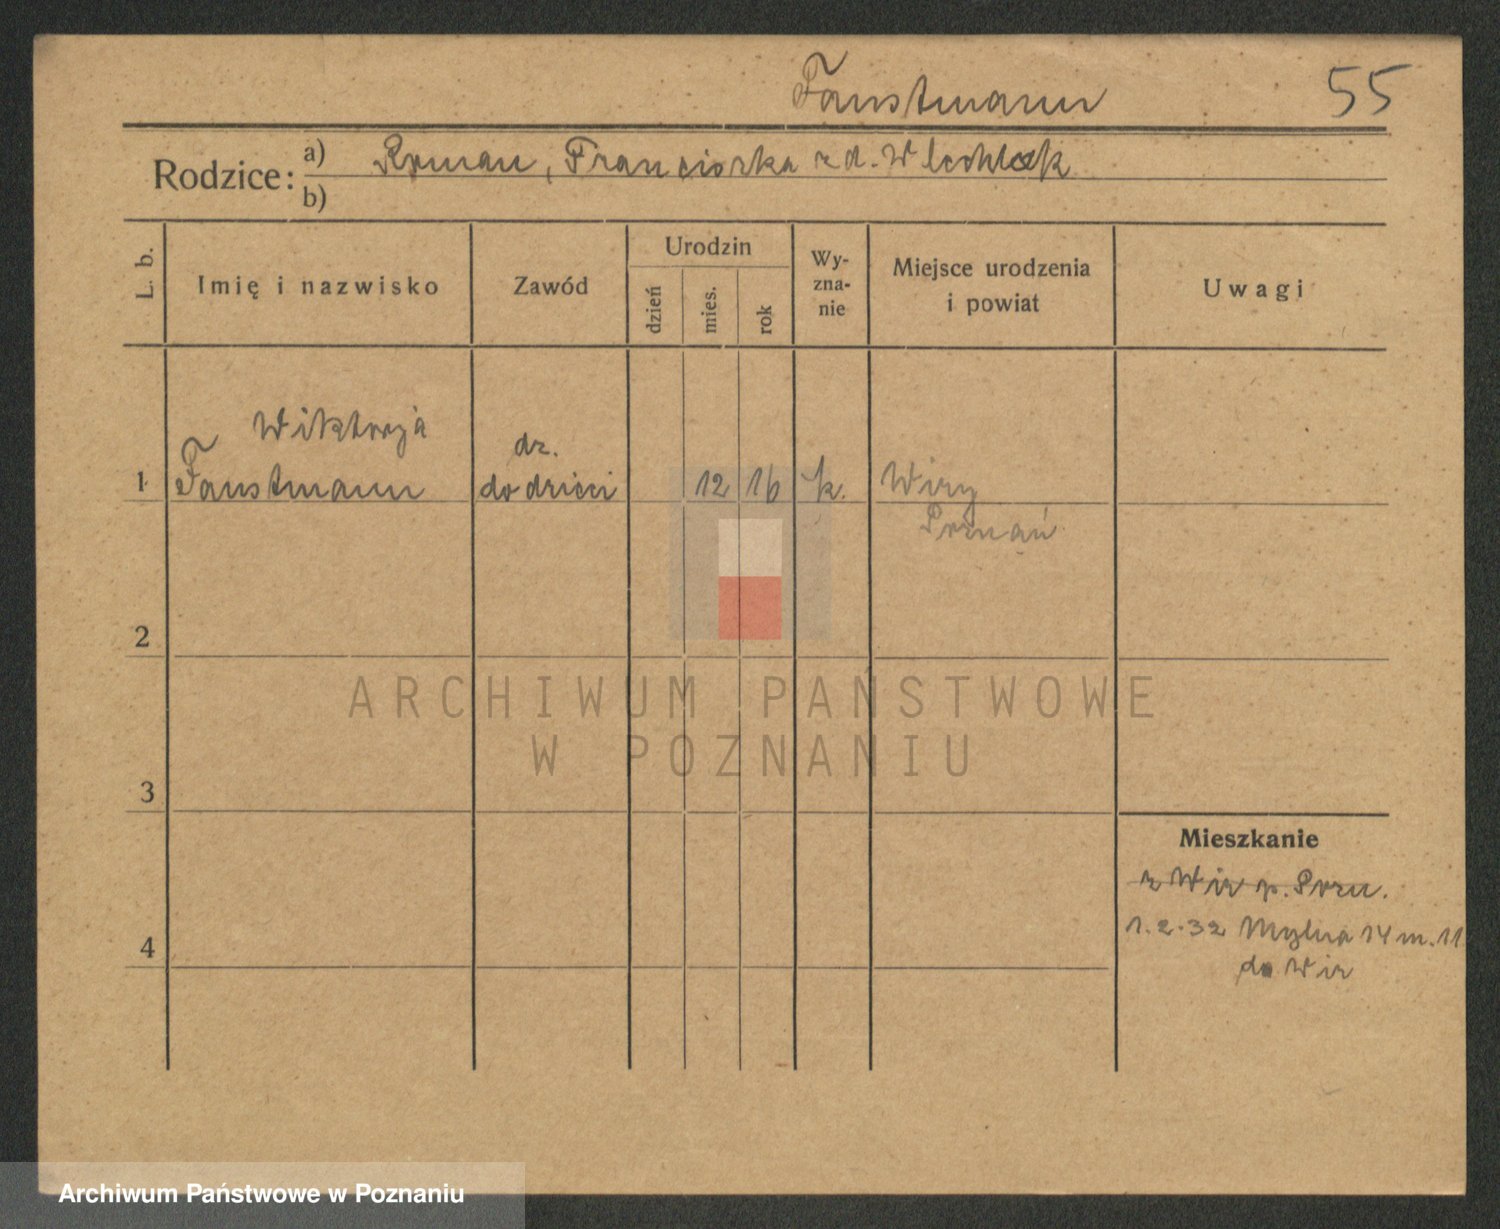 Faustmann 55
Rodzice: a) Roman, Franciszka z d.
b)
L. b.
Imię i nazwisko
Zawód
Urodzin
dzień
mies.
rok
Wy-
zna-
nie
Miejsce urodzenia
i powiat
Uwagi
Wiktorja
dz.
1 Faustmann do dzieci 12 16 k. Wiry
Poznań
2
3
4
Mieszkanie
z Wir p. Pozn.
1.2.32 Mylna 14 m. 11
do Wir
ARCHIWUM PAŃSTWOWE
W POZNANIU
Archiwum Państwowe w Poznaniu